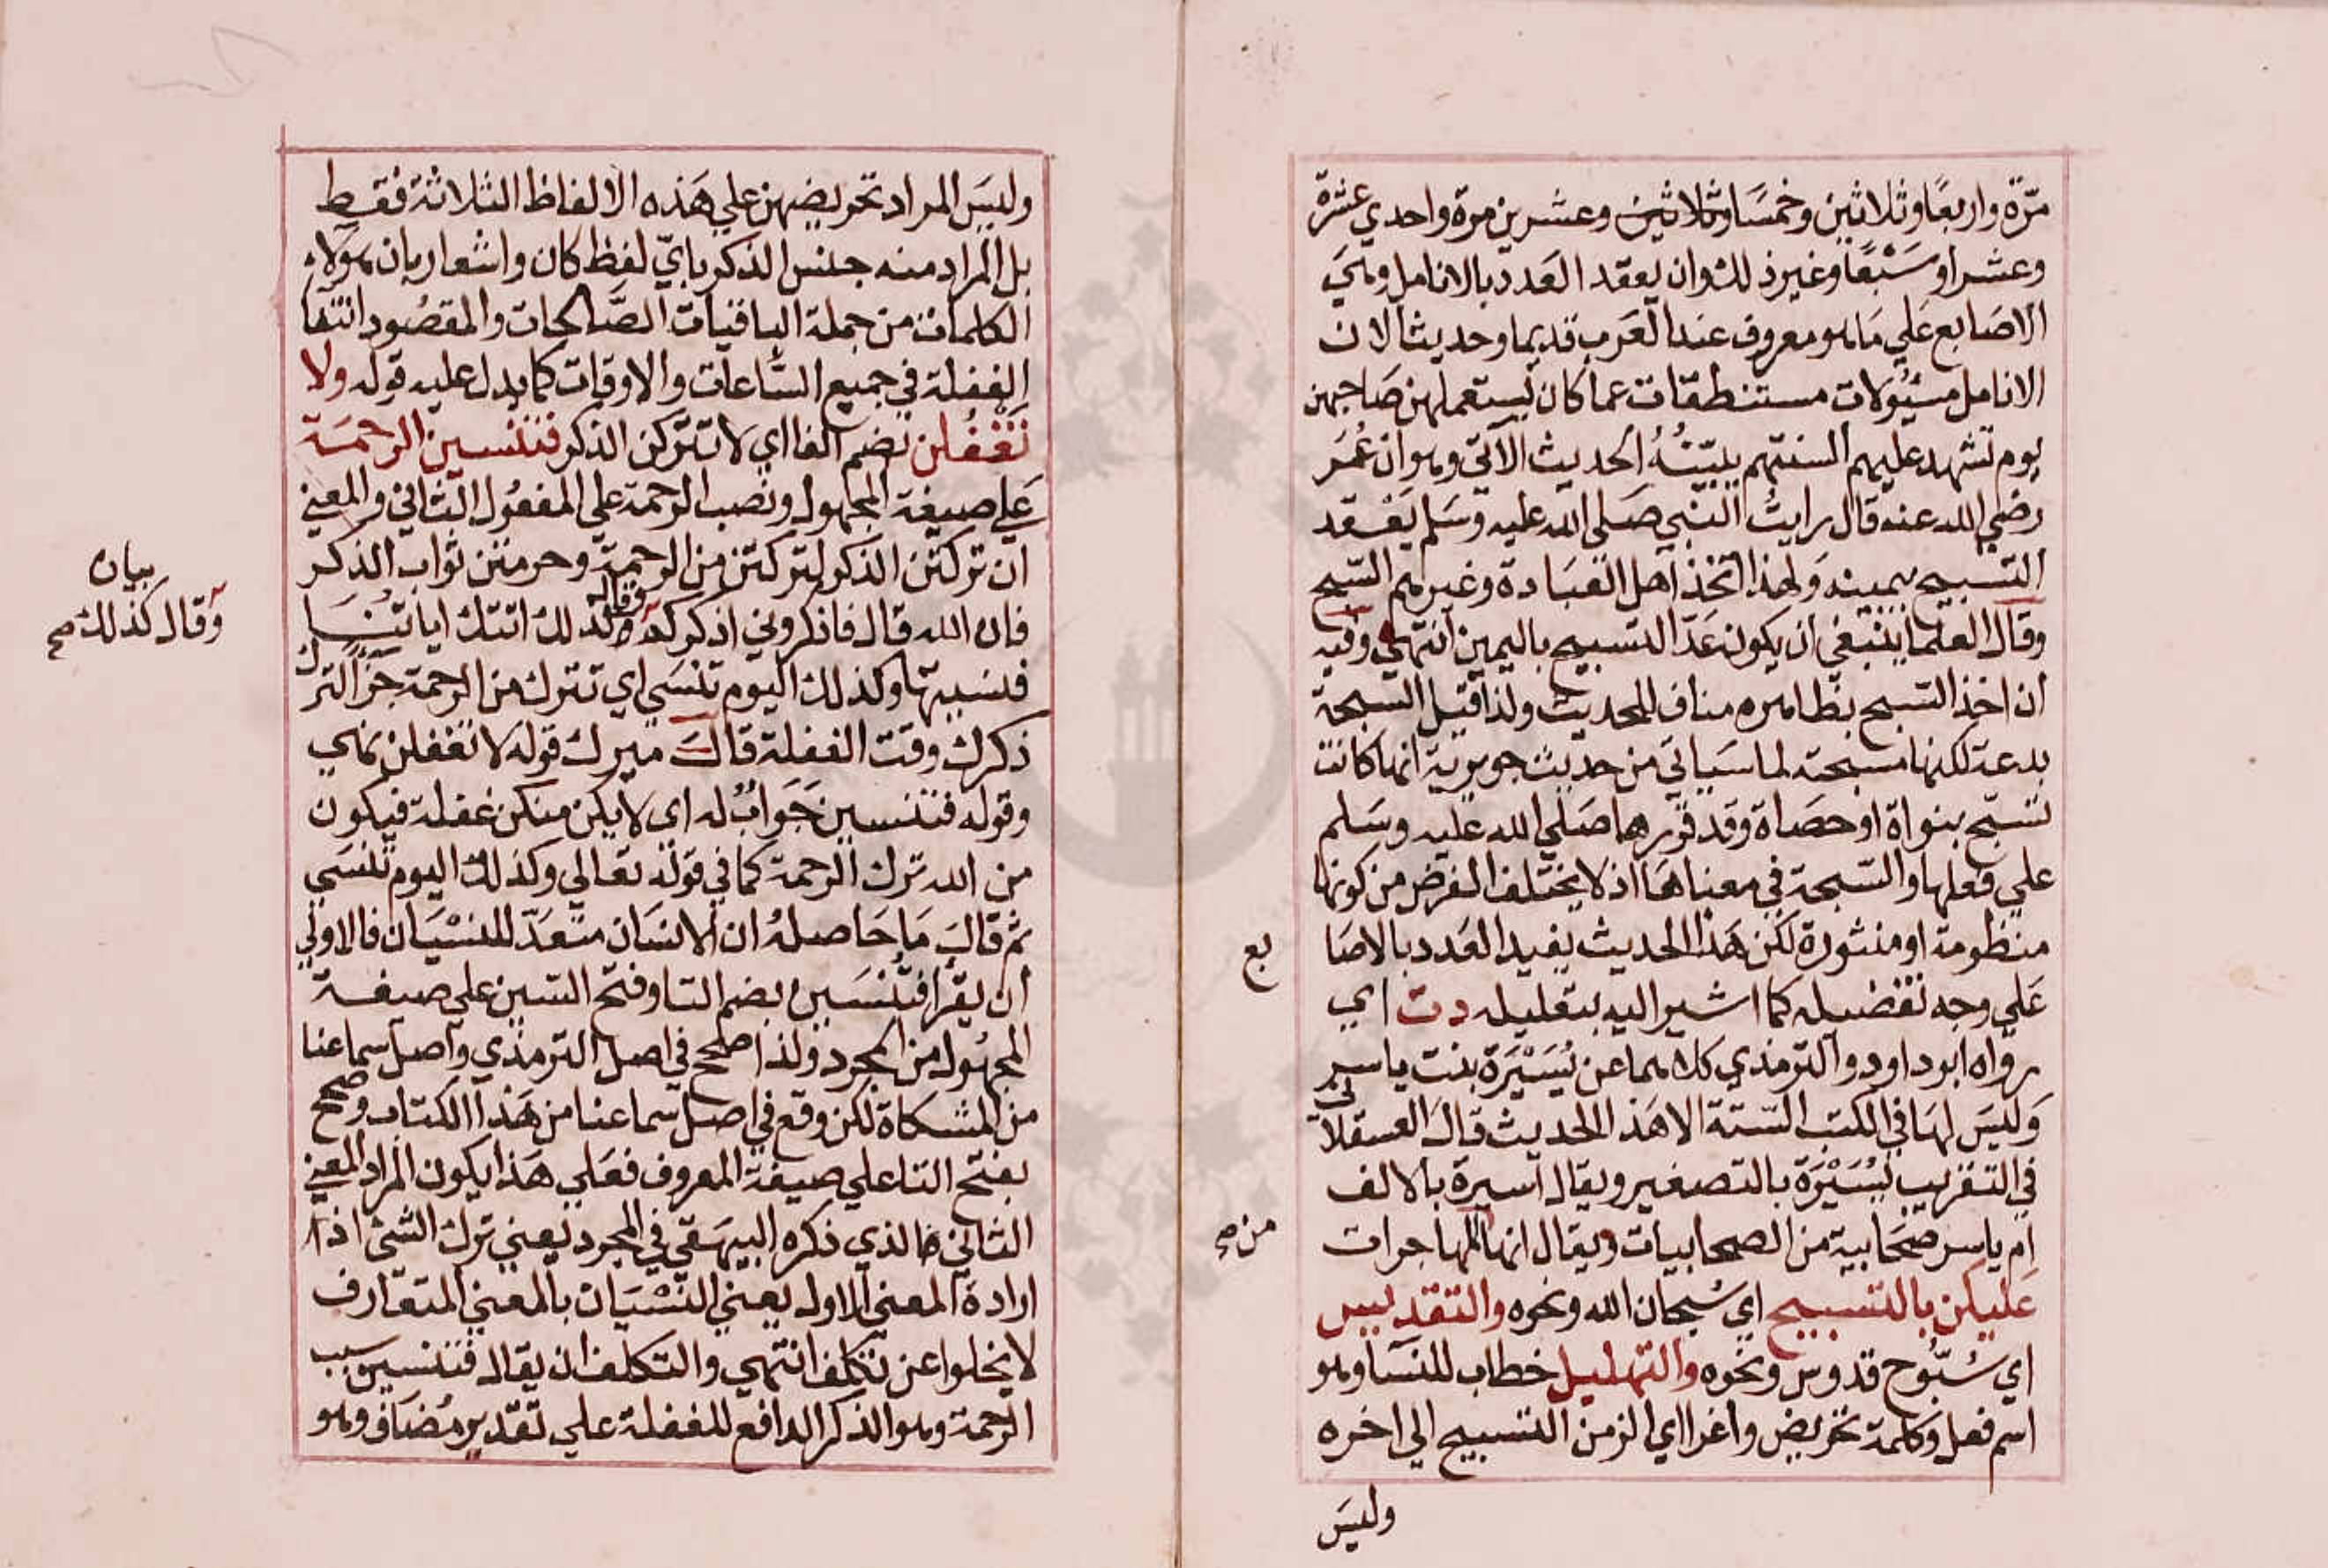 مرّة واربعًا وثلاثين وخمسًا وثلاثين وعشرين مرة واحدي عشرة
وعشرا وسَبْعًا وغير ذلك وان يعقد العدد بالانامل وهي
الاصَابع عَلي مَا هو معروف عند العَرب قديما وحديثا لان
الانامل مسئولات مستنطقات عما كان يستعملهن صَاحبهن
يوم تشهد عليهم السنتهم يبيّنُهُ الحديث الآتي وهو ان عُمَر
رضي الله عنه قال رايتُ النبي صَلي الله عليه وسَلم يَعْقد
التسبيح بيمينه وَلهذا اتخذ اهل العبَادة وغيرهم السّبح
وقال العلما ينبغي ان يكون عَدّ التسبيح باليمين انتهي وفيه
ان اخذ السّبح بظاهره مناف للحديث ولذا قيل السبحة
بدعة لكنها مستحبة لما سَياتي من حديث جويرية انها كانت
تسَبّح بنواة او حصَاة وقد قررها صَلي الله عليه وسَلم
علي فعلها والسّبحة في معناهَا اذ لا يختلف الغرض من كونها
منظومة او منثورة لكن هَذا الحديث يفيد العَدد بالاصَا
بع
عَلي وجه تفضيله كما اشير اليه بتعليله دت اي
رواه ابو داود والترمذي كلاهما عن يُسَيْرَة بنت ياسر
وَليسَ لهَا في الكتب السّتة الا هَذا الحديث قال العسقلا
ني
في التقريب يُسَيْرَة بالتصغير ويقال اسيرة بالالف
ام ياسر صحَابية من الصحابيات ويقال انها المهاجرات
من صح
عَليكن بالتسبيح اي سُبحان الله ونحوه والتقديس
اي سُبّوح قدوس ونحوه والتهليل خطاب للنسَا وهو
اسم فعل وكلمة تحريض واغرا اي الزمن التسبيح الي اخره
وليسَ
وليسَ المراد تحريضهن علي هَذه الالفاظ الثلاثة فقط
بل المراد منه جنس الذكر بايّ لفظ كان واشعار بان هَولاء
الكلمات من جملة الباقيات الصَّالحات والمقصُود انتفا
الغفلة في جميع السَّاعات والاوقات كما يدل عليه قوله ولا
تَغْفُلن بضم الفا اي لا تتركن الذكر فتنسين الرحمَة
عَلي صيغة المجهول ونصب الرحمة علي المفعُول الثاني والمعني
ان تركتن الذكر لتركتن من الرحمة وحرمتن ثواب الذكر
فان الله قال فاذكروني اذكركم وقال كذلك اتتك اياتنَا
بيان
وقال كذلك صح
فنسيتها وكذلك اليوم تنسَي اي تترك من الرحمة جزَا لترك
ذكرك وقت الغفلة قالَ ميرك قوله لا تغفلن نهي
وقوله فتنسين جَوابُ له اي لا يكن منكن غفلة فيكون
من الله ترك الرحمة كما في قوله تعالي وكذلك اليوم تنسَي
ثم قالَ مَا حَاصلهُ ان الانسَان متعَدّ للنسْيَان فالاولي
ان يقرا فتُنْسَين بضم التا وفتح السّين علي صيغة
المجهُول من المجرد ولذا صُحح في اصل الترمذي واصل سماعنا
من المشكاة لكن وقع في اصل سماعنا من هَذا الكتاب وصحح
بفتح التا علي صيغة المعروف فعَلي هَذا يكون المراد المعني
الثاني الذي ذكره البيهَقي في المجرد يعني ترك الشي اذ
ارادة المعني الاول يعني النسْيَان بالمعني المتعَارف
لا يخلوا عن تكلف انتهي والتكلف ان يقال فتنسين سبب
الرحمة وهو الذكر الدافع للغفلة علي تقدير مُضَاف وهو